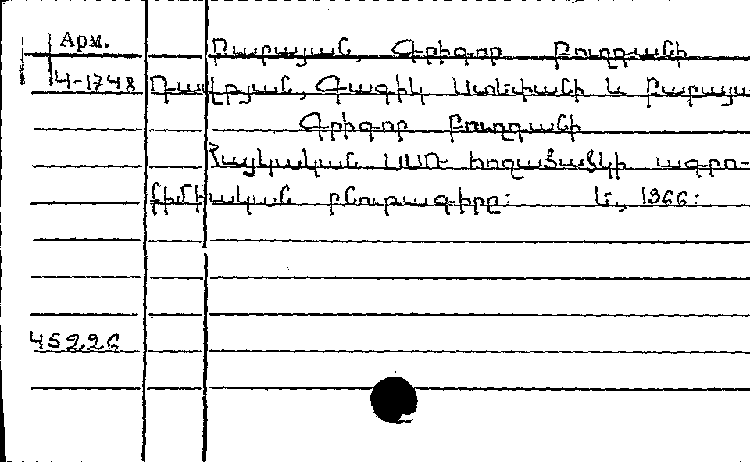 Арм.
4-1748
Բաբայան, Գրիգոր Բուղդանի
Դավթյան, Գագիկ Ստեփանի և Բաբայա
Գրիգոր Բուղդանի
Հայկական ՍՍՌ հողածածկի ագրո-
քիմիական բնութագիրը։ Ե., 1966։
45226